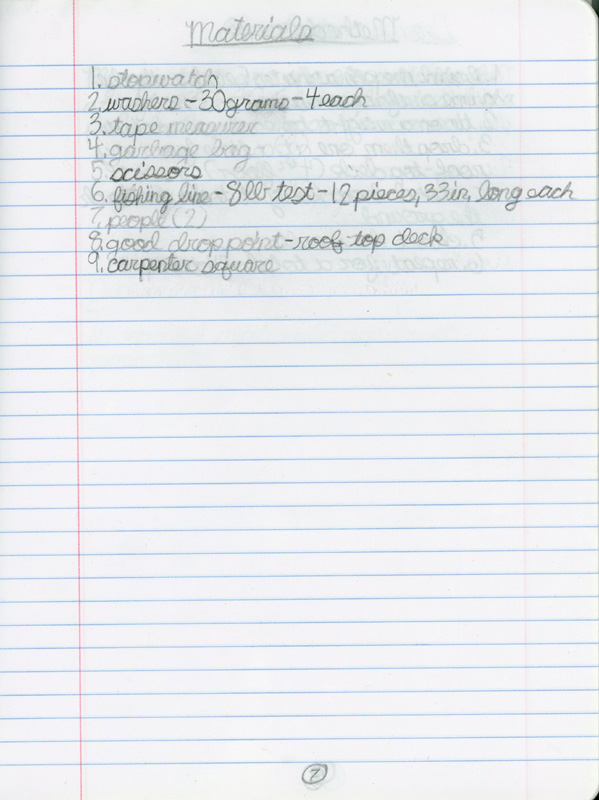 Materials
1. stopwatch
2. washers - 30 grams - 4 each
3. tape measurer
4. garbage bag
5. scissors
6. fishing line - 8 lb test - 12 pieces, 33 in. long each
7. people (2)
8. good drop point - roof top deck
9. carpenter square
7